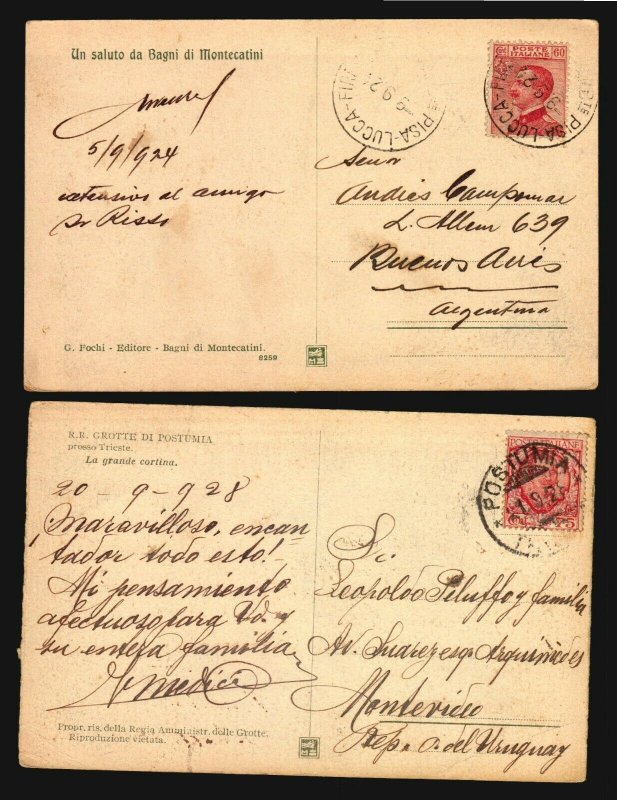 Un saluto da Bagni di Montecatini
5/9/924
extensivo al amigo
Sr Risso
PISA-LUCCA-FIR
POSTE
ITALIANE
60
PISA-LUCCA-FIR
Señor
Andrés Campomar
L. Allem 639
Buenos Aires
Argentina
G. Fochi - Editore - Bagni di Montecatini.
8259
R.R. GROTTE DI POSTUMIA
presso Trieste.
La grande cortina.
20-9-928
¡Maravilloso, encan
tador todo esto!
Mi pensamiento
afectuoso para Vd. y
su entera familia
POSTE ITALIANE
POSTUMIA
Leopoldo Peluffo y familia
Av. Suarez esq. Arquimedes
Montevideo
Rep. o. del Uruguay
Propr. ris. della Regia Amministr. delle Grotte.
Riproduzione vietata.